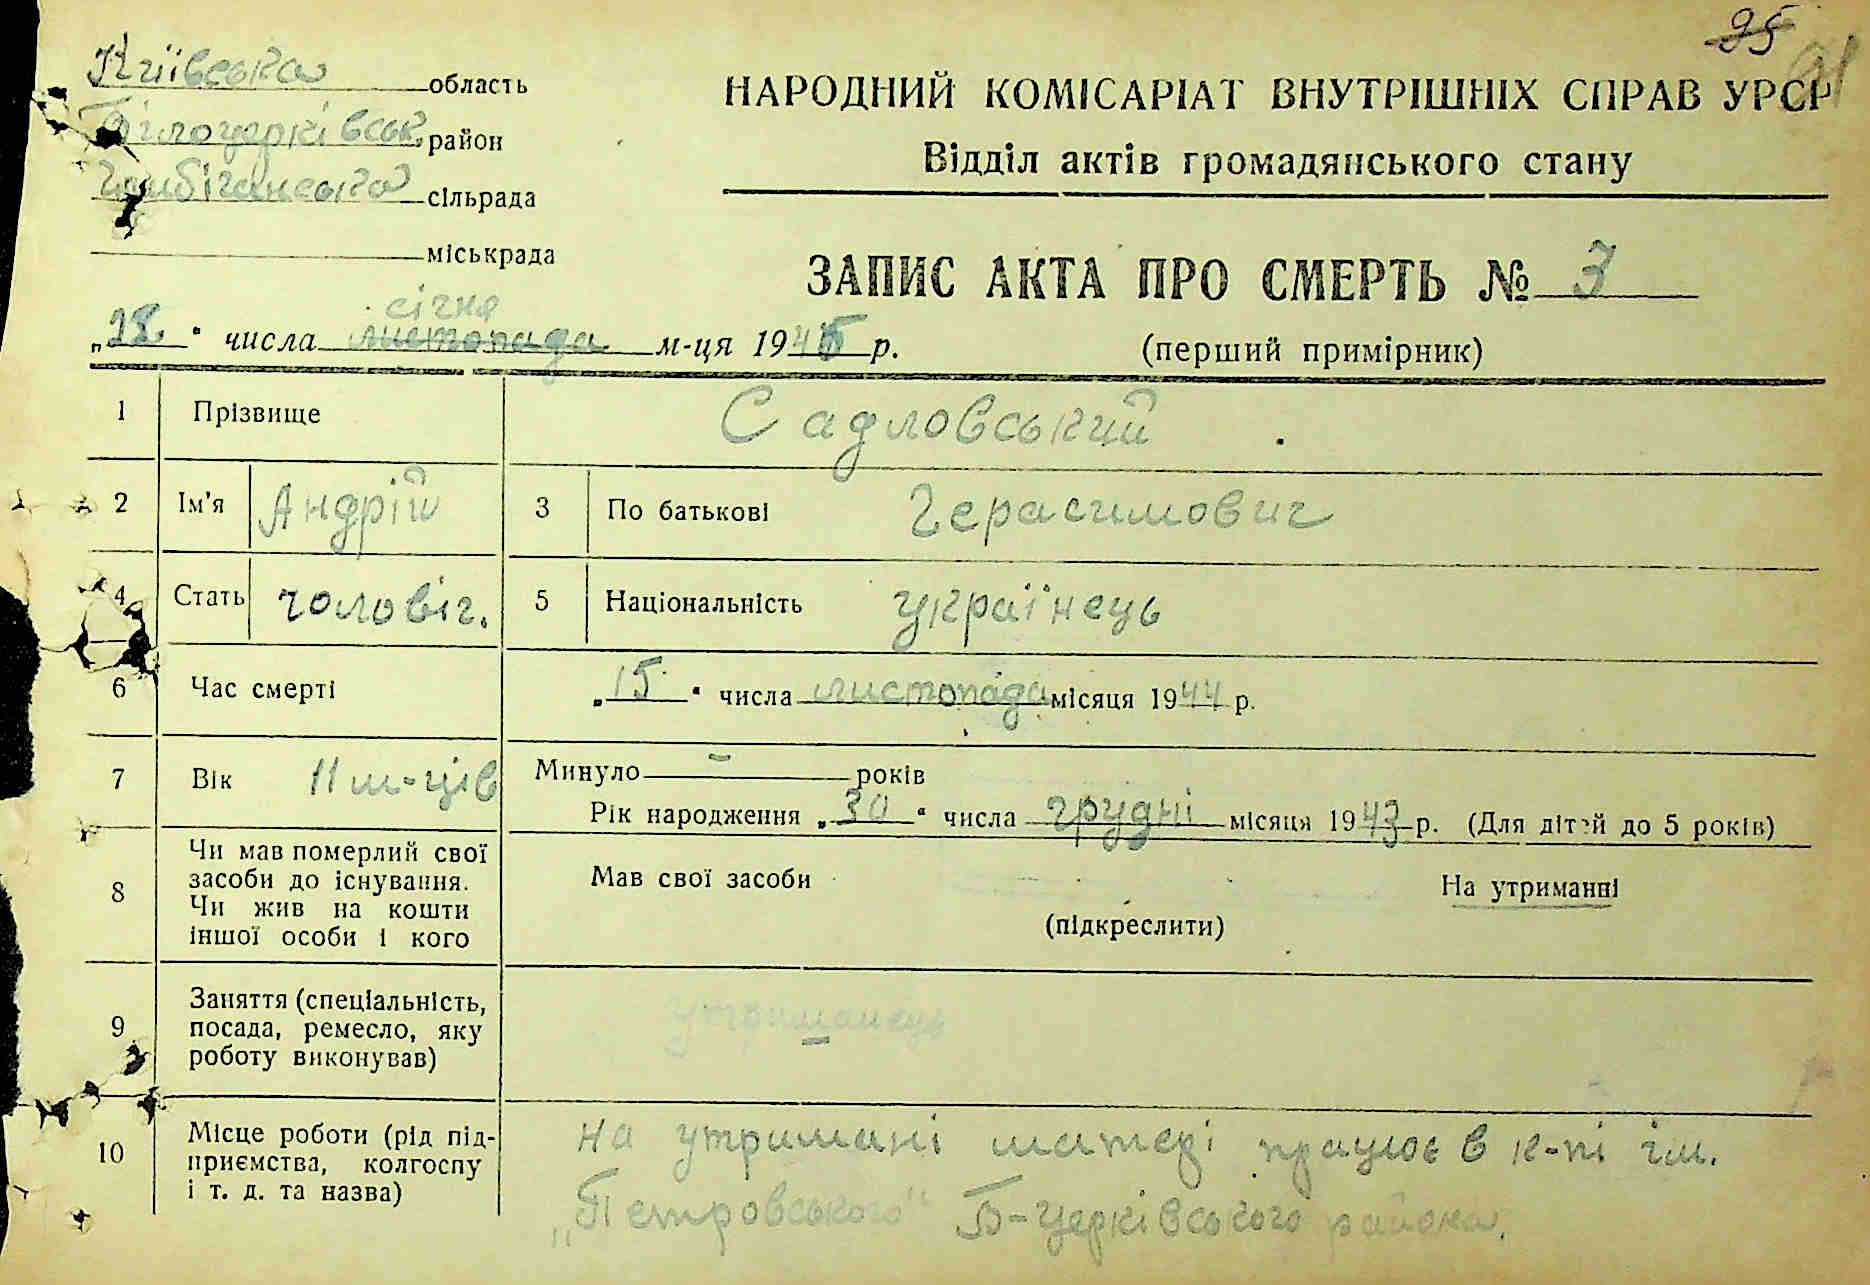 95
Київська область
Білоцерківськ. район
сільрада
міськрада
НАРОДНИЙ КОМІСАРІАТ ВНУТРІШНІХ СПРАВ УРСР
Відділ актів громадянського стану
ЗАПИС АКТА ПРО СМЕРТЬ № 3
(перший примірник)
січня
„28“ числа листопада м-ця 1945 р.
1 Прізвище Садловський
2 Ім'я Андрій 3 По батькові Герасимович
4 Стать чоловіч. 5 Національність українець
6 Час смерті „15“ числа листопада місяця 1944 р.
7 Вік 11 м-ців Минуло — років
Рік народження „30“ числа грудні місяця 1943 р. (Для дітей до 5 років)
8 Чи мав померлий свої
засоби до існування.
Чи жив на кошти
іншої особи і кого
Мав свої засоби На утриманні
(підкреслити)
9 Заняття (спеціальність,
посада, ремесло, яку
роботу виконував)
утриманець
10 Місце роботи (рід під-
приємства, колгоспу
і т. д. та назва)
на утримані матері працює в к-пі ім.
„Петровського" Б-Церківського района.